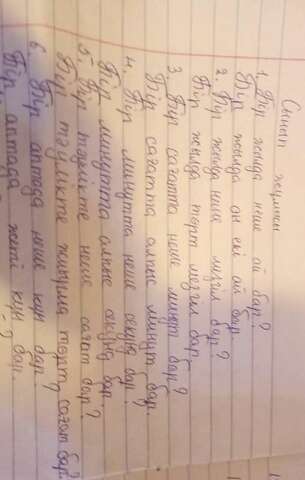 Сынып жұмысы
1. Бір жылда неше ай бар?
Бір жылда он екі ай бар.
2. Бір жылда неше мезгіл бар?
Бір жылда төрт мезгіл бар.
3. Бір сағатта неше минут бар?
Бір сағатта алпыс минут бар.
4. Бір минутта неше секунд бар?
Бір минутта алпыс секунд бар.
5. Бір тәулікте неше сағат бар?
Бір тәулікте жиырма төрт сағат бар.
6. Бір аптада неше күн бар?
Бір аптада жеті күн бар.